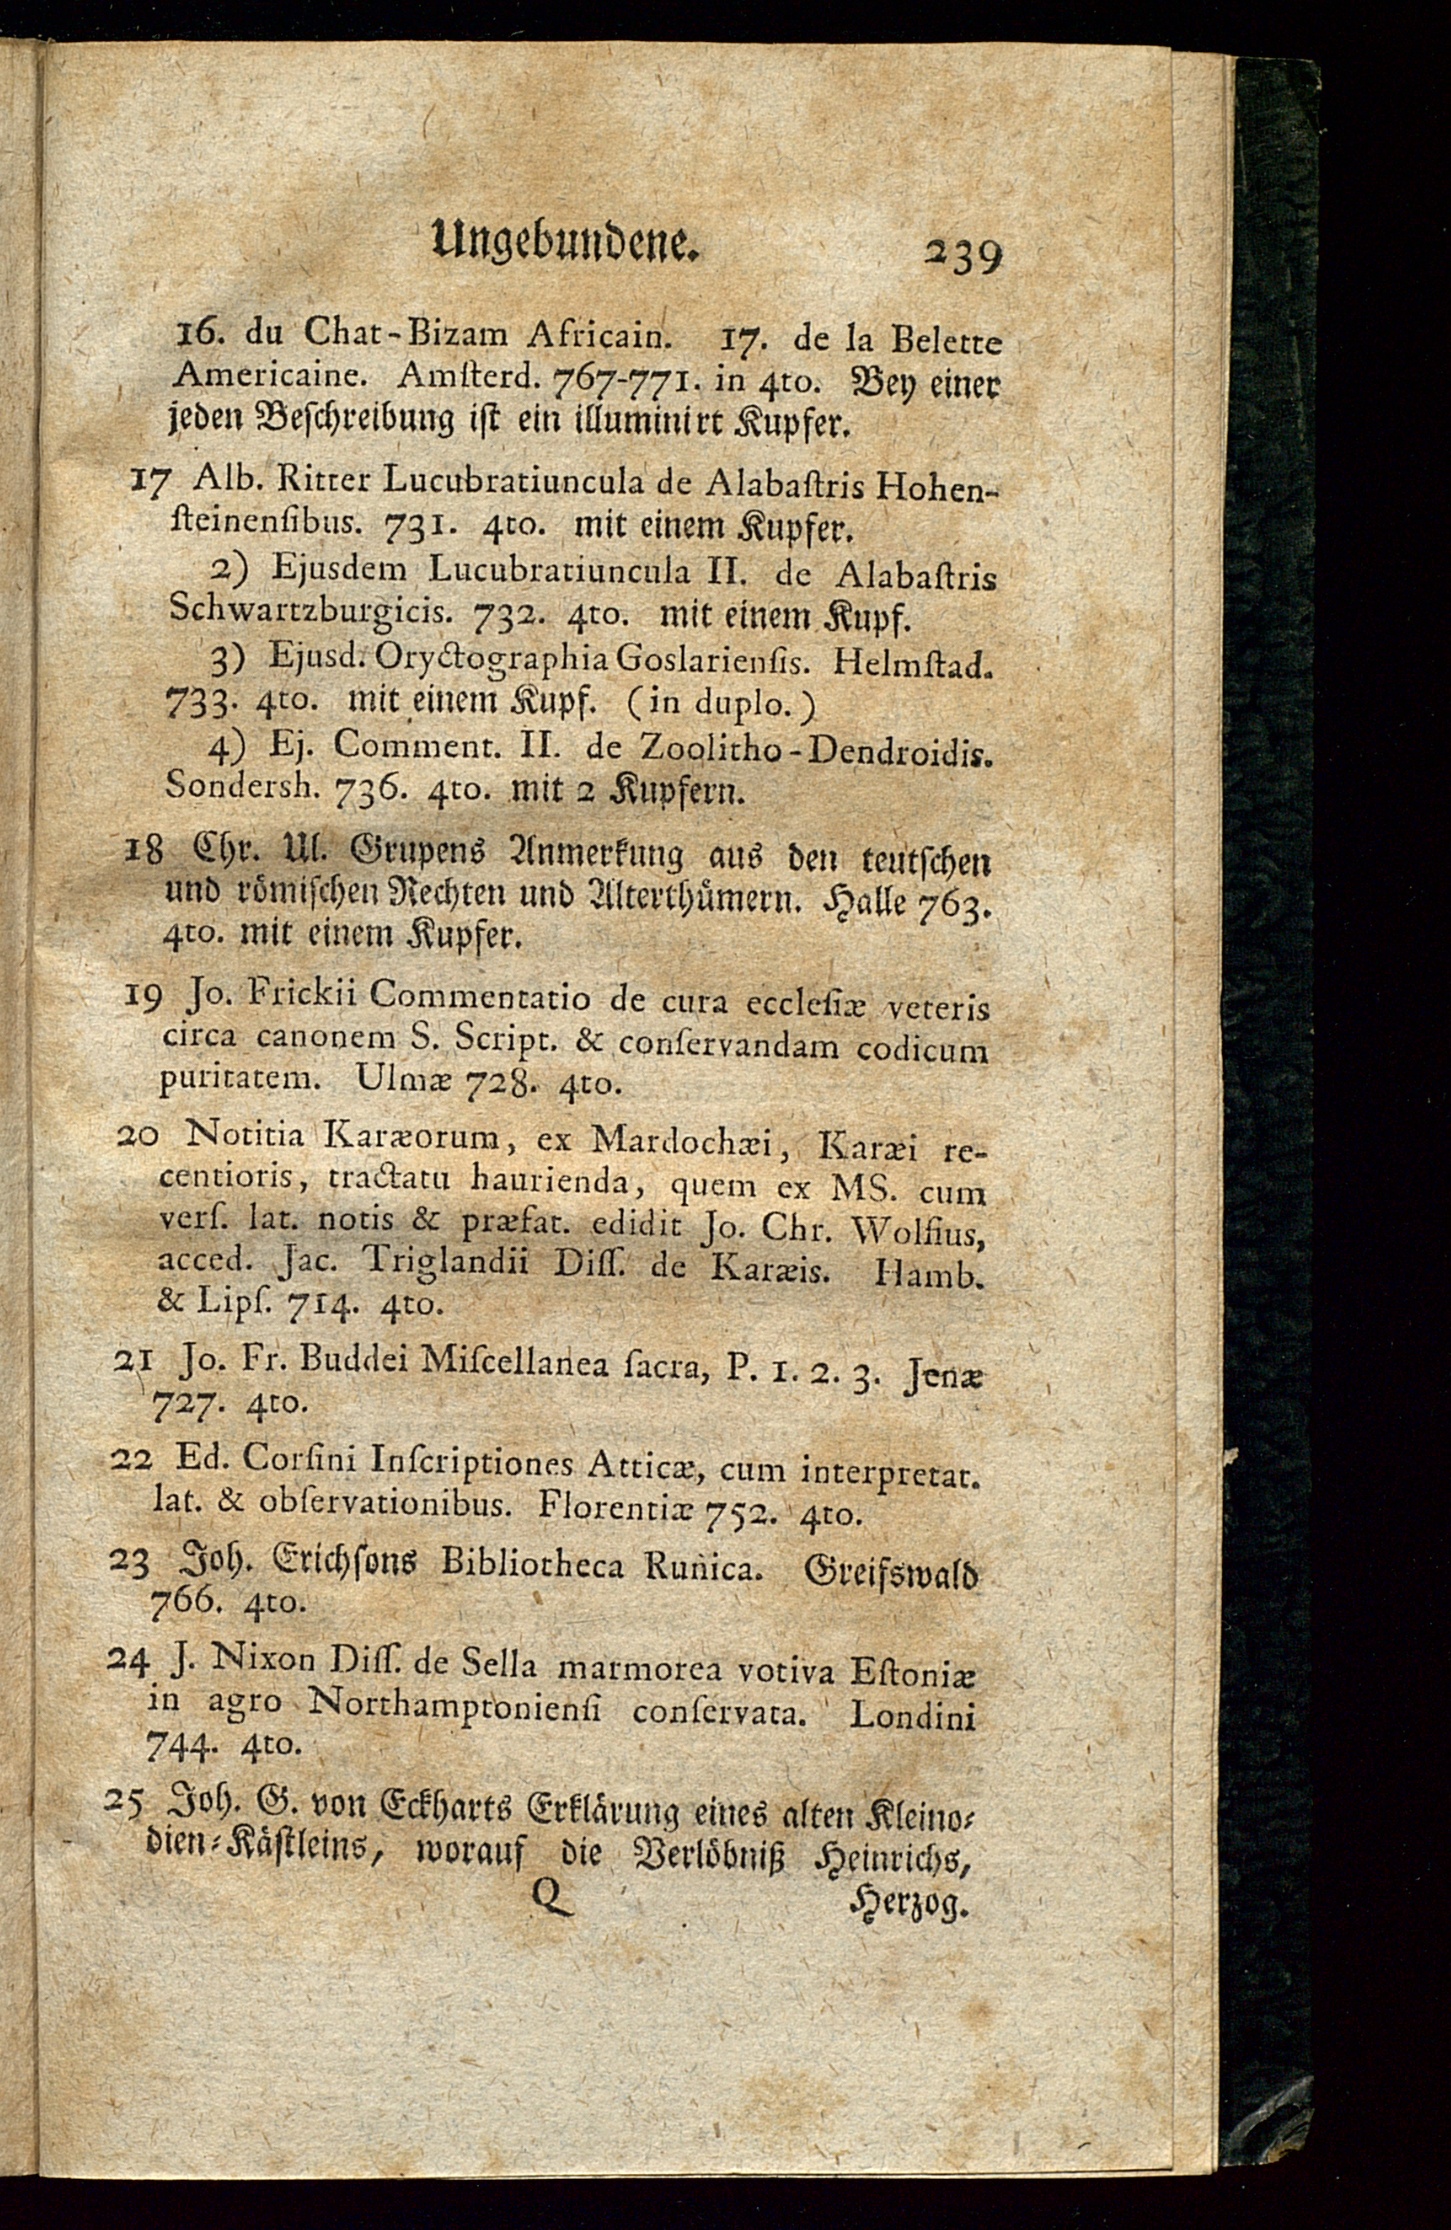 Ungebundene. 239
16. du Chat-Bizam Africain. 17. de la Belette
Americaine. Amſterd. 767-771. in 4to. Bey einer
jeden Beſchreibung iſt ein illuminirt Kupfer.
17 Alb. Ritter Lucubratiuncula de Alabaſtris Hohen-
ſteinenſibus. 731. 4to. mit einem Kupfer.
2) Ejusdem Lucubratiuncula II. de Alabaſtris
Schwartzburgicis. 732. 4to. mit einem Kupf.
3) Ejusd. Oryctographia Goslarienſis. Helmſtad.
733. 4to. mit einem Kupf. (in duplo.)
4) Ej. Comment. II. de Zoolitho-Dendroidis.
Sondersh. 736. 4to. mit 2 Kupfern.
18 Chr. Ul. Grupens Anmerkung aus den teutſchen
und römiſchen Rechten und Alterthümern. Halle 763.
4to. mit einem Kupfer.
19 Jo. Frickii Commentatio de cura eccleſiæ veteris
circa canonem S. Script. & conſervandam codicum
puritatem. Ulmæ 728. 4to.
20 Notitia Karæorum, ex Mardochæi, Karæi re-
centioris, tractatu haurienda, quem ex MS. cum
verſ. lat. notis & præfat. edidit Jo. Chr. Wolfius,
acced. Jac. Triglandii Diſſ. de Karæis. Hamb.
& Lipſ. 714. 4to.
21 Jo. Fr. Buddei Miſcellanea ſacra, P. 1. 2. 3. Jenæ
727. 4to.
22 Ed. Corſini Inſcriptiones Atticæ, cum interpretat.
lat. & obſervationibus. Florentiæ 752. 4to.
23 Joh. Erichſons Bibliotheca Runica. Greifswald
766. 4to.
24 J. Nixon Diſſ. de Sella marmorea votiva Eſtoniæ
in agro Northamptonienſi conſervata. Londini
744. 4to.
25 Joh. G. von Eckharts Erklärung eines alten Kleino-
dien-Käſtleins, worauf die Verlöbniß Heinrichs,
Q Herzog.